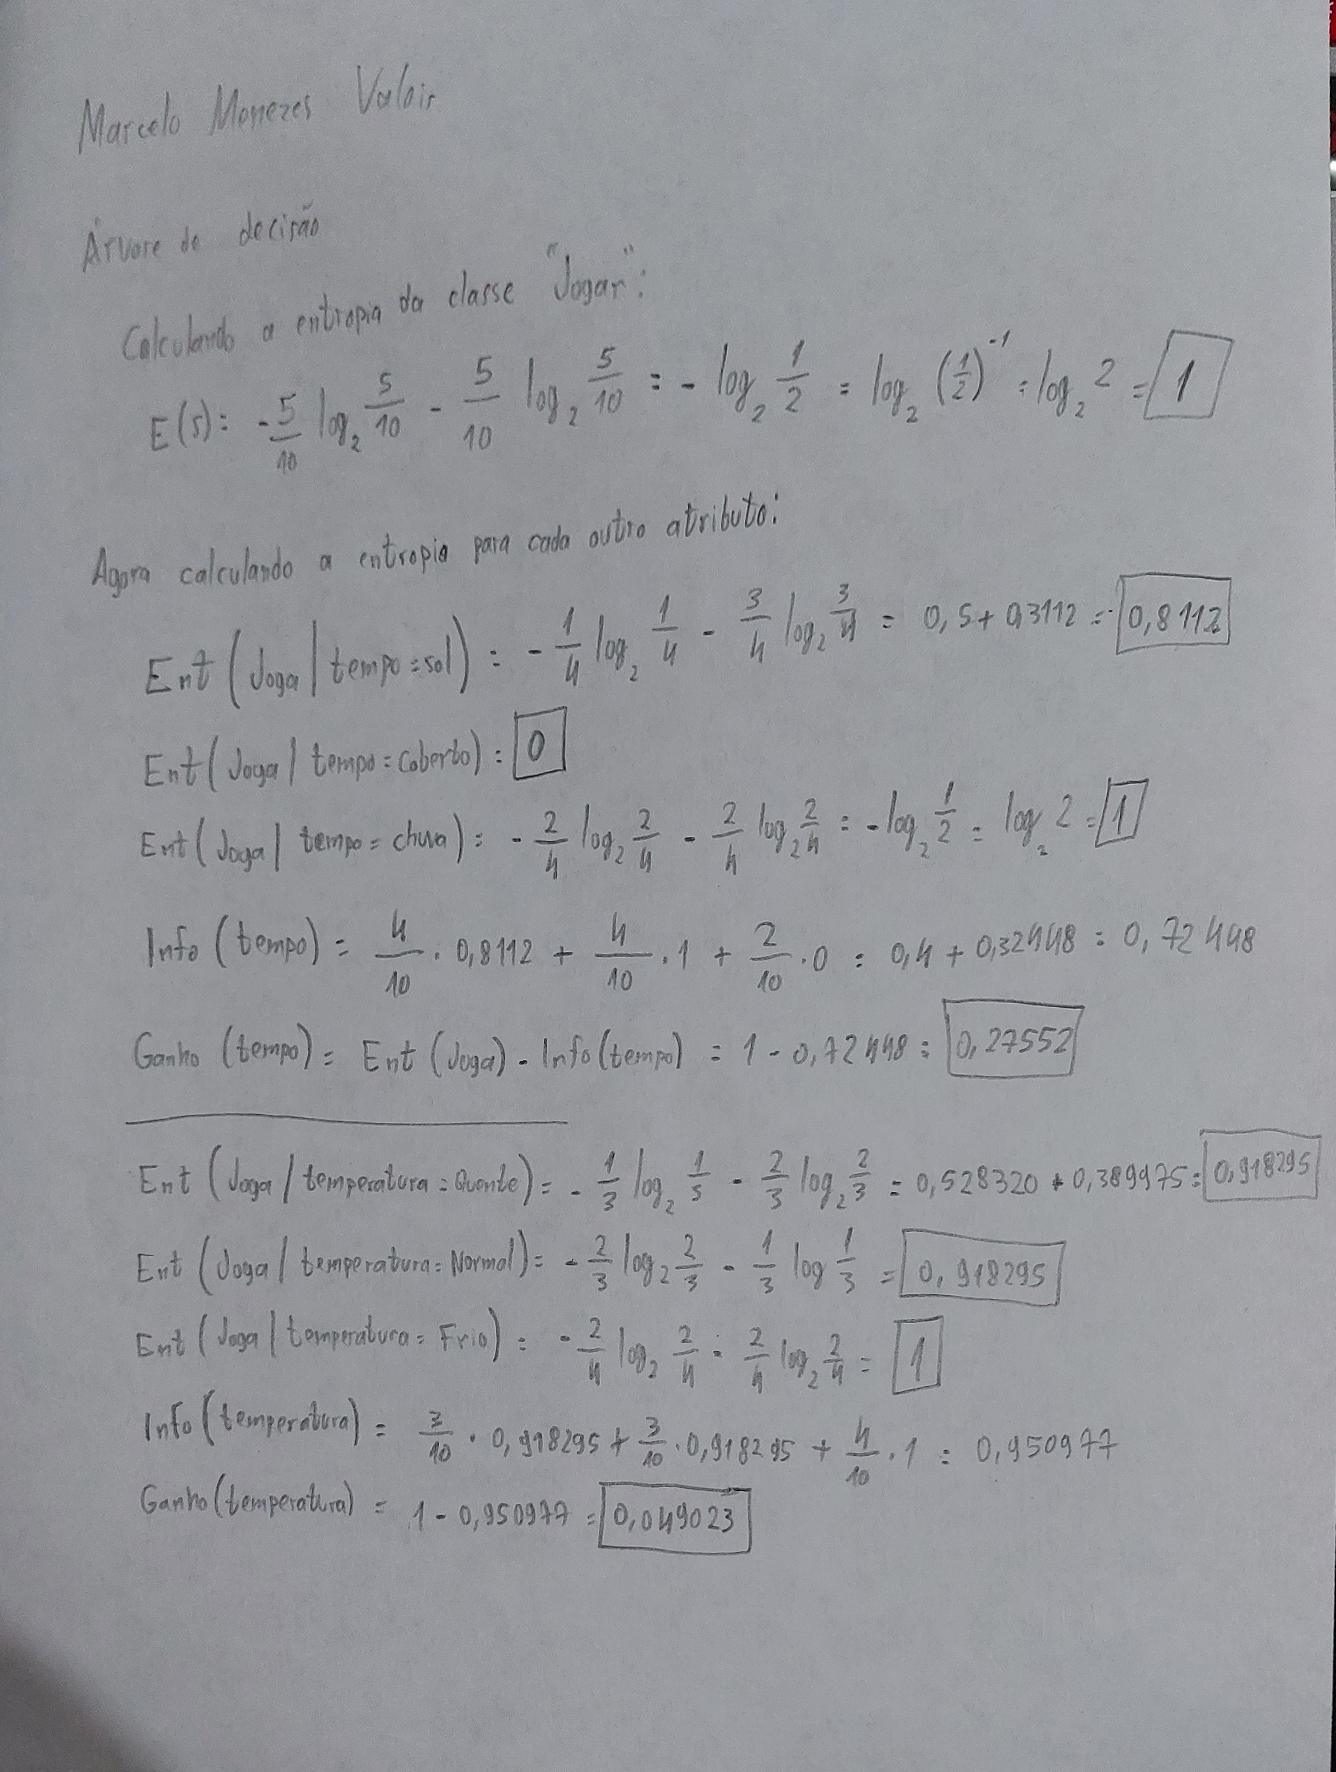 Marcelo Menezes Valois
Árvore de decisão
Calculando a entropia da classe "Jogar":
E(S): -5/10 log₂ 5/10 - 5/10 log₂ 5/10 = - log₂ 1/2 = log₂ (1/2)⁻¹ = log₂ 2 = 1
Agora calculando a entropia para cada outro atributo:
Ent (Joga | tempo=sol) = - 1/4 log₂ 1/4 - 3/4 log₂ 3/4 = 0,5 + 0,3112 = 0,8112
Ent (Joga | tempo = Coberto) = 0
Ent (Joga | tempo = chuva) = - 2/4 log₂ 2/4 - 2/4 log₂ 2/4 = - log₂ 1/2 = log₂ 2 = 1
Info (tempo) = 4/10 . 0,8112 + 4/10 . 1 + 2/10 . 0 = 0,4 + 0,32448 = 0,72448
Ganho (tempo) = Ent (Joga) - Info (tempo) = 1 - 0,72448 = 0,27552
Ent (Joga | temperatura = Quente) = - 1/3 log₂ 1/3 - 2/3 log₂ 2/3 = 0,528320 + 0,389975 = 0,918295
Ent (Joga | temperatura = Normal) = - 2/3 log₂ 2/3 - 1/3 log 1/3 = 0,918295
Ent (Joga | temperatura = Frio) = - 2/4 log₂ 2/4 - 2/4 log₂ 2/4 = 1
Info (temperatura) = 3/10 . 0,918295 + 3/10 . 0,918295 + 4/10 . 1 = 0,950977
Ganho (temperatura) = 1 - 0,950977 = 0,049023